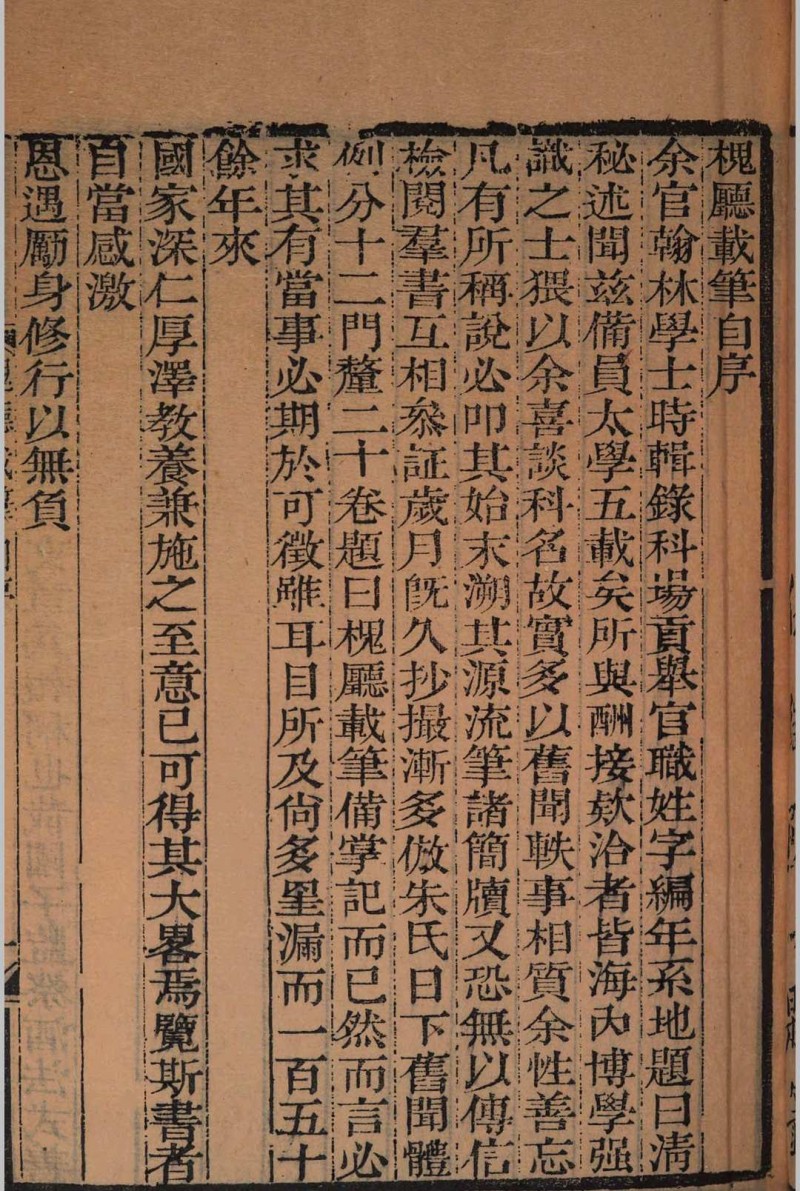 槐廳載筆自序
余官翰林學士時輯錄科場貢舉官職姓字編年系地題曰清
秘述聞兹備員太學五載矣所與酬接欵洽者皆海内博學强
識之士猥以余喜談科名故實多以舊聞軼事相質余性善忘
凡有所稱說必叩其始末溯其源流筆諸簡牘又恐無以傳信
檢閱羣書互相叅証歲月旣久抄撮漸多倣朱氏日下舊聞體
例分十二門釐二十卷題曰槐廳載筆備掌記而已然而言必
求其有當事必期於可徵雖耳目所及尙多罣漏而一百五十
餘年來
國家深仁厚澤教養兼施之至意已可得其大畧焉覽斯書者
自當感激
恩遇勵身修行以無負